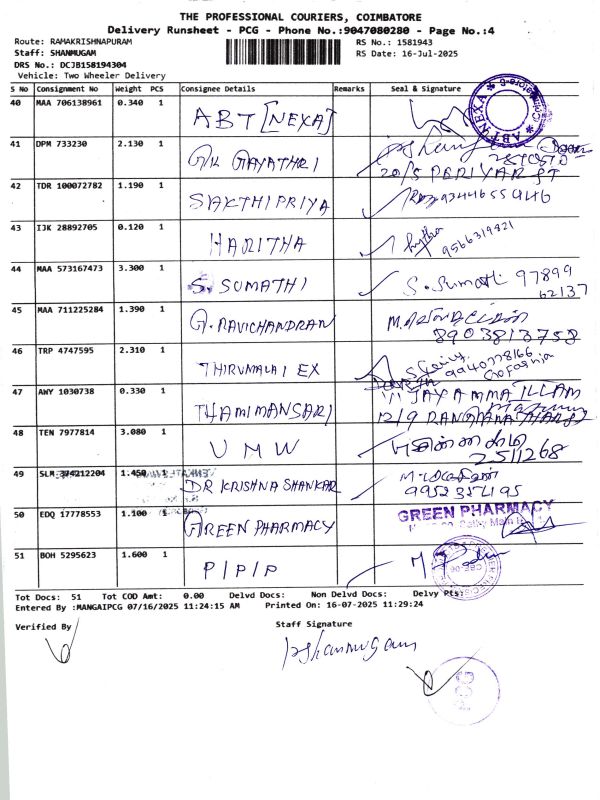 THE PROFESSIONAL COURIERS, COIMBATORE
Delivery Runsheet - PCG - Phone No.:9047080280 - Page No.:4
Route: RAMAKRISHNAPURAM
RS No.: 1581943
Staff: SHANMUGAM
RS Date: 16-Jul-2025
DRS No.: DCJB158194304
Vehicle: Two Wheeler Delivery
S No Consignment No Weight PCS Consignee Details Remarks Seal & Signature
40 MAA 706138961 0.340 1 ABT [NEXA]
ABT NEXA
41 DPM 733230 2.130 1 G/K GAYATHRI
20/5 PERIYAR ST
42 TDR 100072782 1.190 1 SAKTHI PRIYA 9344655446
43 IJK 28892705 0.120 1 HARITHA
9566319421
44 MAA 573167473 3.300 1 S. SUMATHI S. Sumathi 97899
62137
45 MAA 711225284 1.390 1 G. RAVICHANDRAN
8903813758
46 TRP 4747595 2.310 1 THIRUMALAI EX
9940778166
47 AWY 1030738 0.330 1 THAMIMANSARI
JAYAMMA ILLAM
12/9
48 TEN 7977814 3.080 1 U M W
2511268
49 SLM 374212204 1.450 1 DR KRISHNA SHANKAR
9952357195
50 EDQ 17778553 1.100 1 GREEN PHARMACY GREEN PHARMACY
51 BOH 5295623 1.600 1 P/P/P
Tot Docs: 51 Tot COD Amt: 0.00 Delvd Docs: Non Delvd Docs: Delvy Pts:
Entered By :MANGAIPCG 07/16/2025 11:24:15 AM Printed On: 16-07-2025 11:29:24
Verified By
Staff Signature
pshanmugam